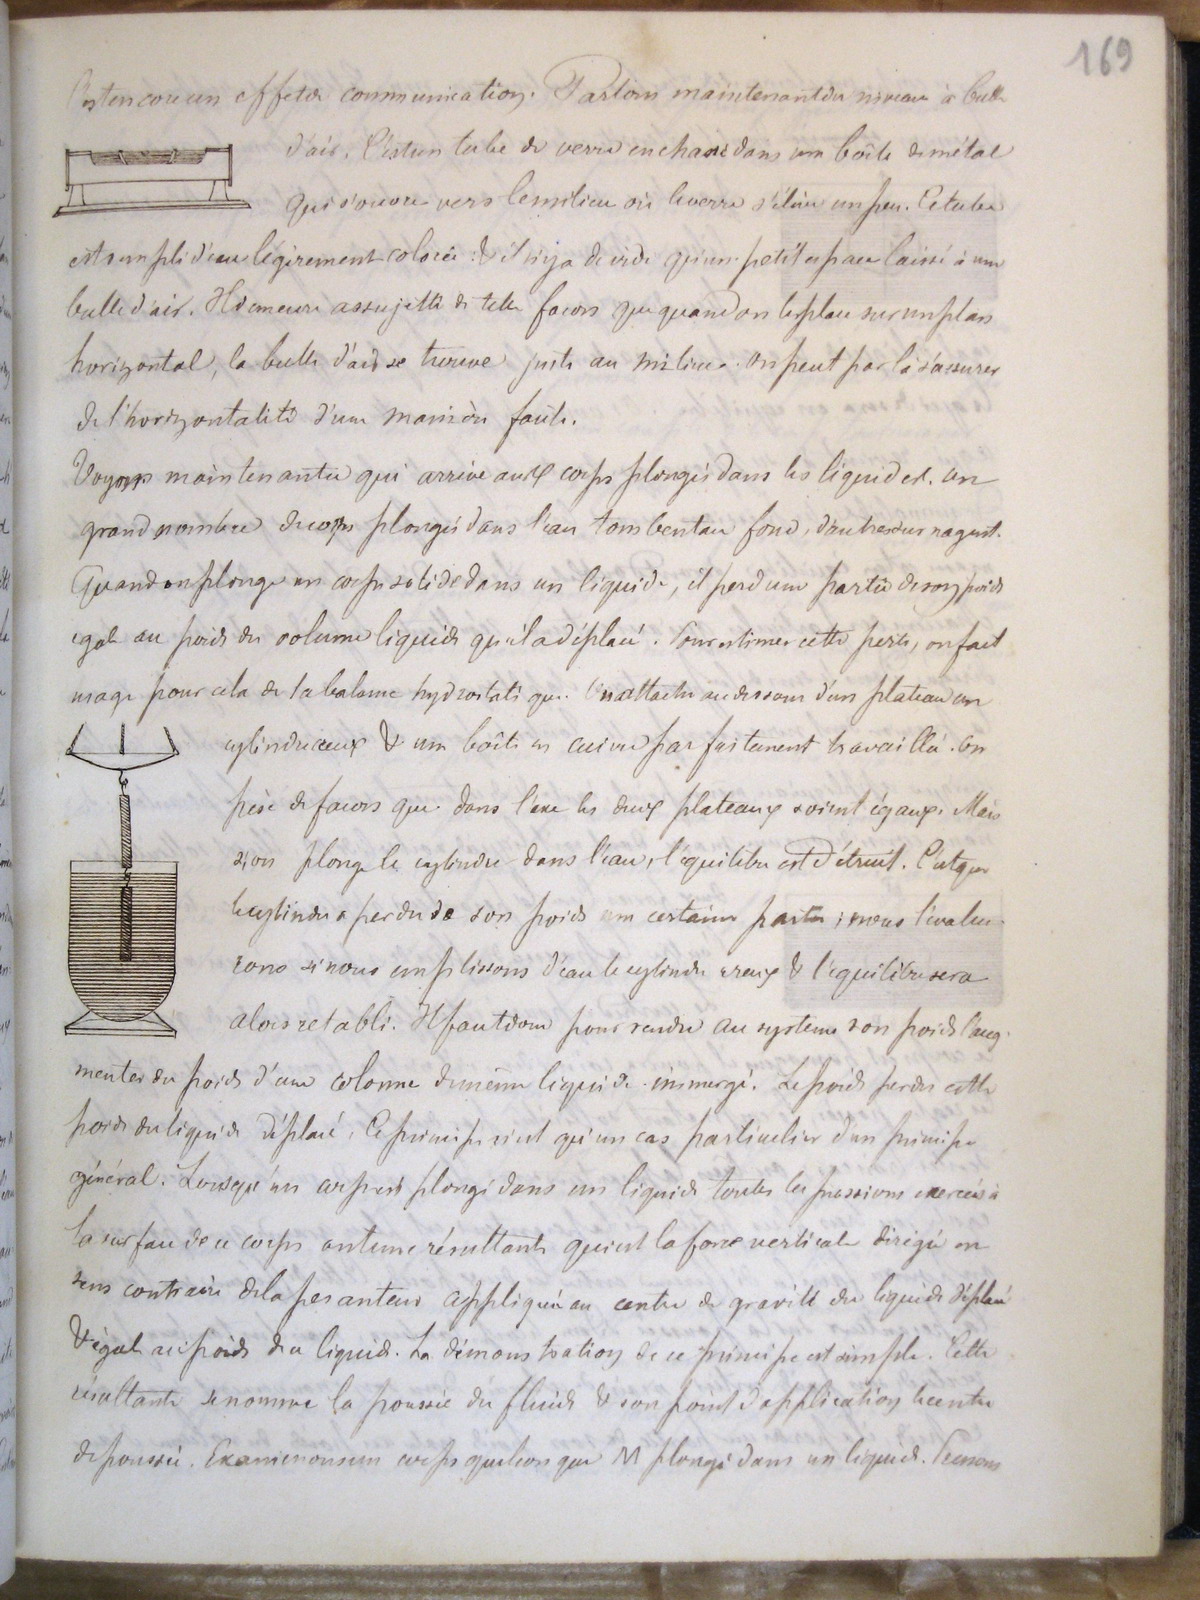 169
C'est encore un effet de communication. Parlons maintenant du niveau à bulle
d'air. C'est un tube de verre enchassé dans une boîte de métal
qui s'ouvre vers le milieu où le verre s'élève un peu. Ce tube
est rempli d'eau légèrement colorée & il n'y a de vide qu'un petit espace laissé à une
bulle d'air. Il demeure assujetti de telle facon que quand on le place sur un plan
horizontal, la bulle d'air se trouve juste au milieu. On peut par là s'assurer
de l'horizontalité d'une manière facile.
Voyons maintenant ce qui arrive aux corps plongés dans les liquides. Un
grand nombre de corps plongés dans l'eau tombent au fond, d'autres surnagent.
Quand on plonge un corps solide dans un liquide, il perd une partie de son poids
égale au poids du volume liquide qu'il a déplacé. Pour estimer cette perte, on fait
usage pour cela de la balance hydrostatique. On attache au dessous d'un plateau un
cylindre creux & une boîte en cuivre parfaitement travaillé. On
pèse de facon que dans l'axe les deux plateaux soient égaux. Mais
si on plonge le cylindre dans l'eau, l'équilibre est détruit. C'est que
le cylindre a perdu de son poids une certaine partie ; nous l'évalue-
rons si nous emplissons d'eau le cylindre creux & l'équilibre sera
alors retabli. Il faut donc pour rendre au systeme son poids l'aug-
menter du poids d'une colonne du même liquide immergé. Le poids perdu est le
poids du liquide déplacé. Ce principe n'est qu'un cas particulier d'un principe
général. Lorsqu'un corps est plongé dans un liquide toutes les pressions exercées à
la surface de ce corps ont une résultante qui est la force verticale dirigée en
sens contraire de la pesanteur appliquée au centre de gravité du liquide déplacé
& égale au poids de ce liquide. La démonstration de ce principe est simple. Cette
résultante se nomme la poussée du fluide & son point d'application le centre
de poussée. Examinons un corps quelconque M plongé dans un liquide. Prenons